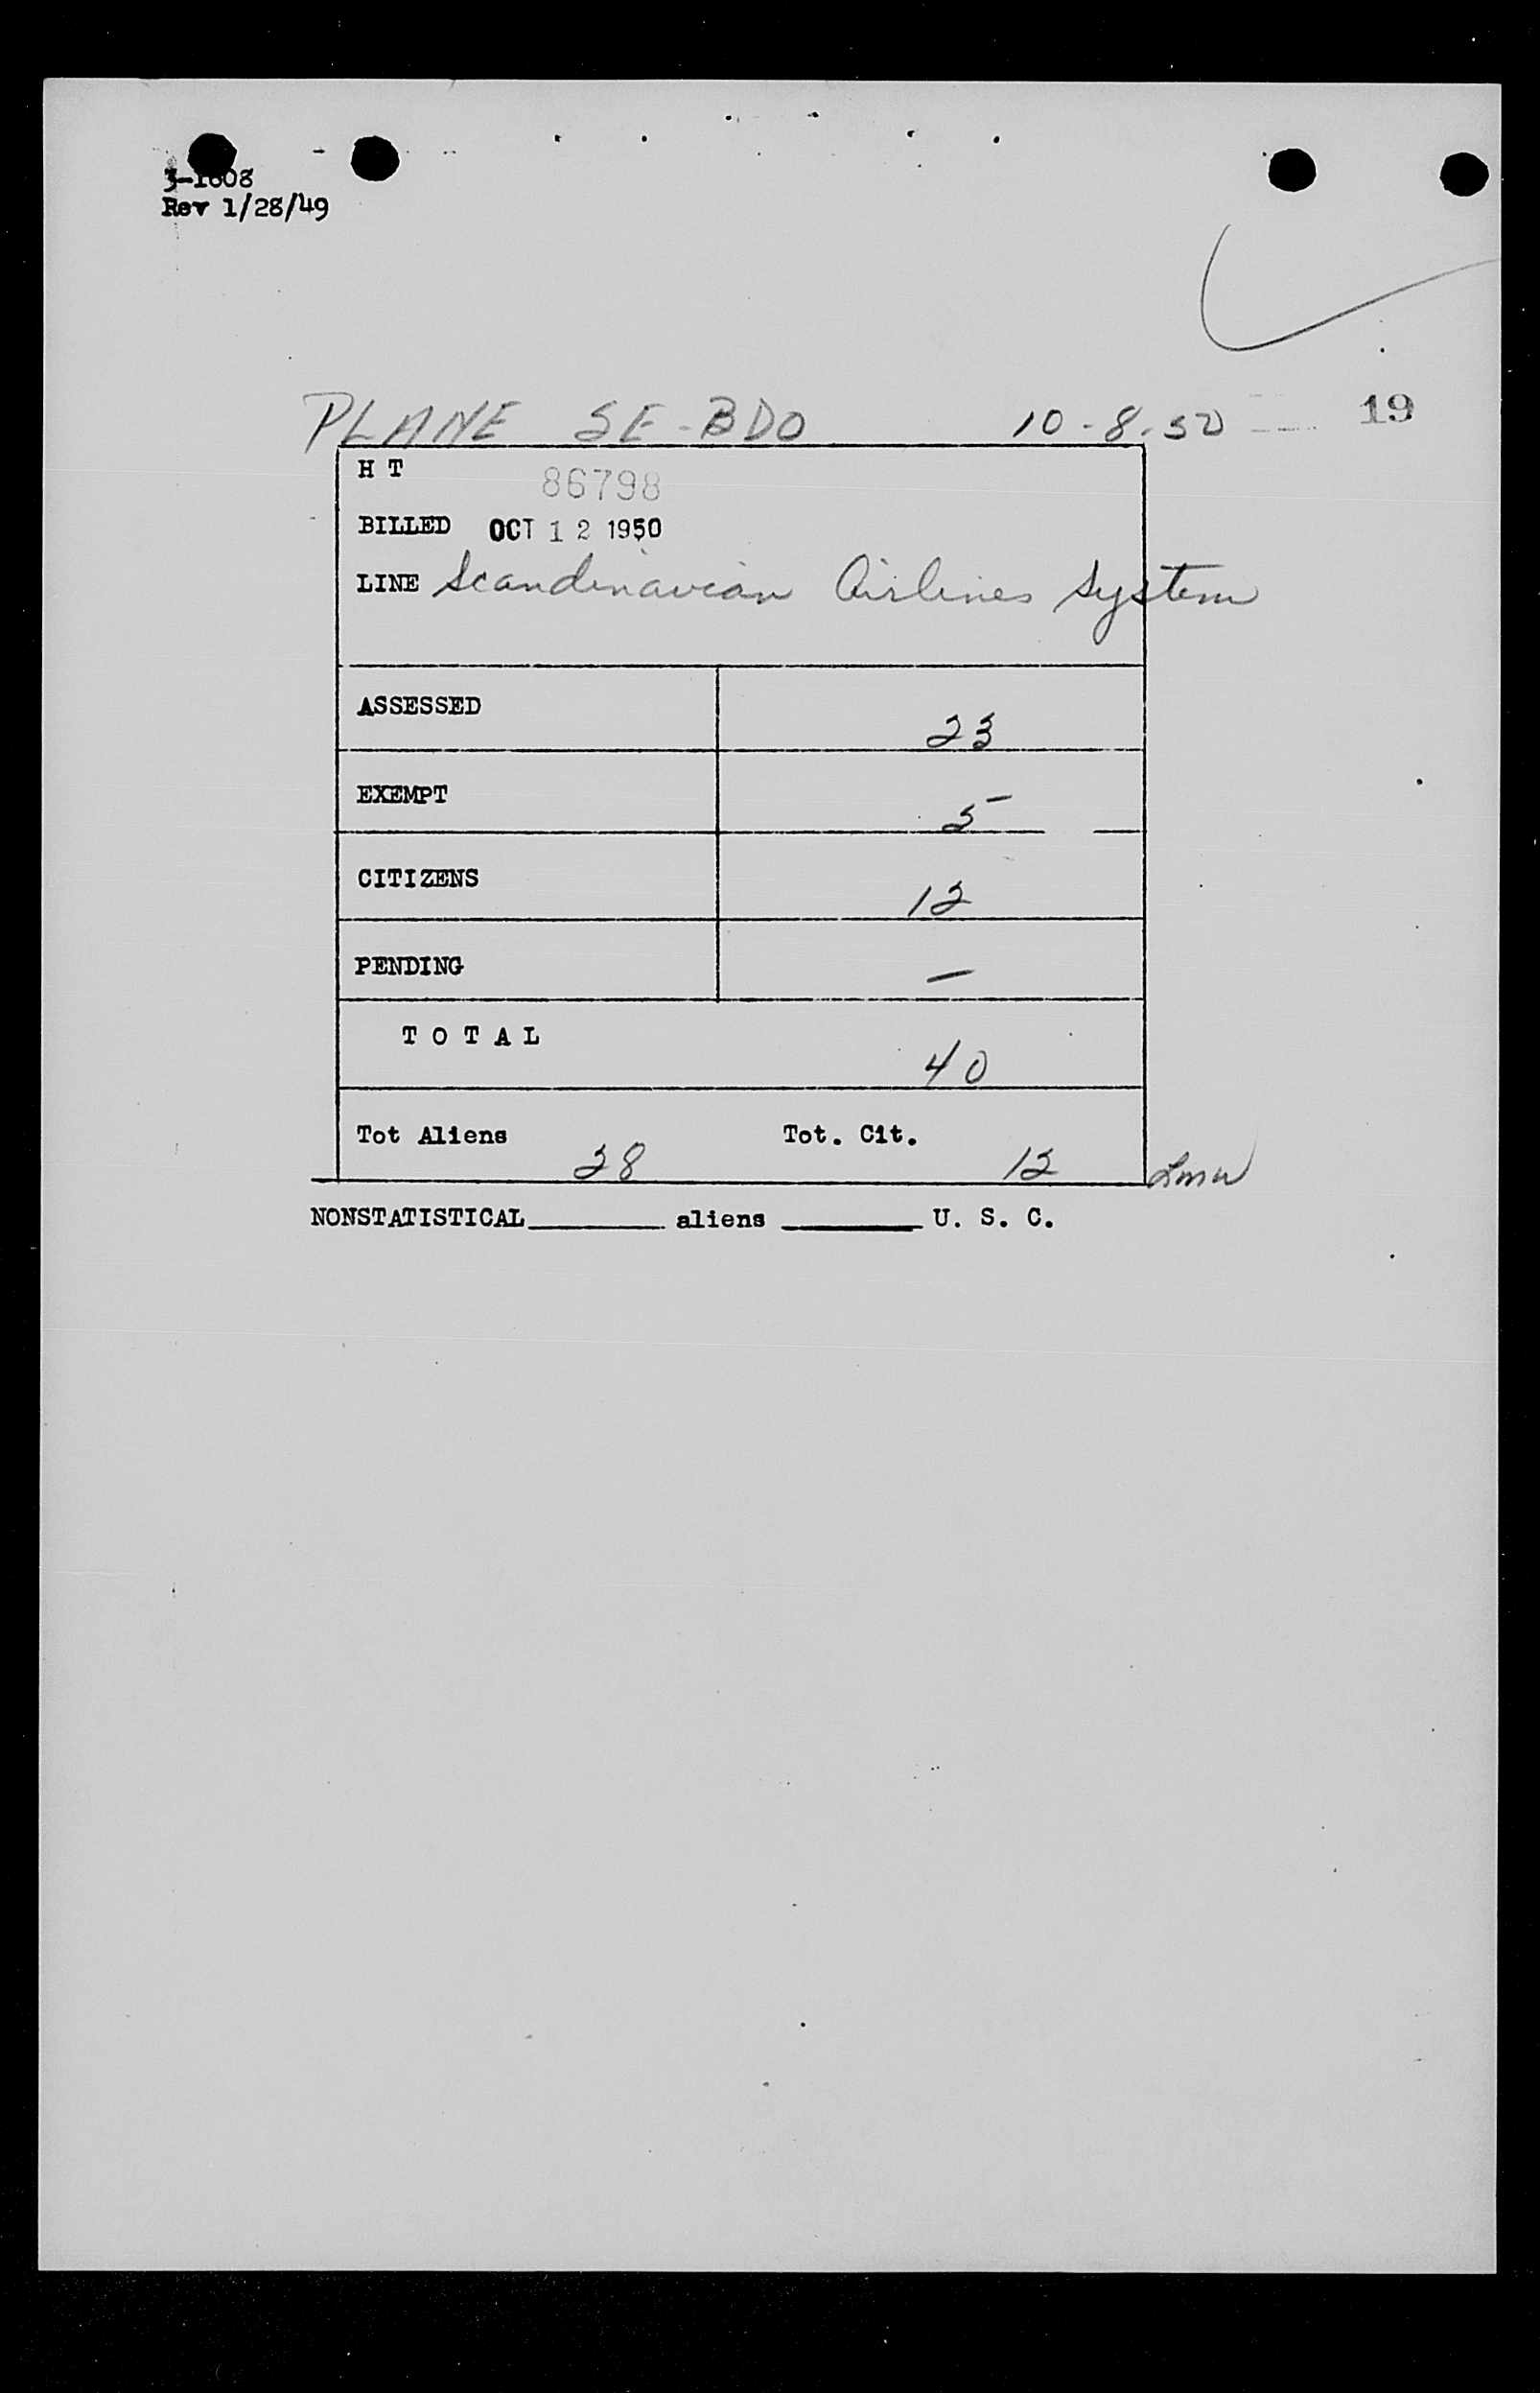 3-1608
Rev 1/28/49
PLANE SE-BDO 10-8-50 19
H T 86798
BILLED OCT 12 1950
LINE Scandinavian Airlines System
ASSESSED 23
EXEMPT 5
CITIZENS 12
PENDING —
T O T A L 40
Tot Aliens 28 Tot. Cit. 12 Lmw
NONSTATISTICAL_______ aliens _______ U. S. C.